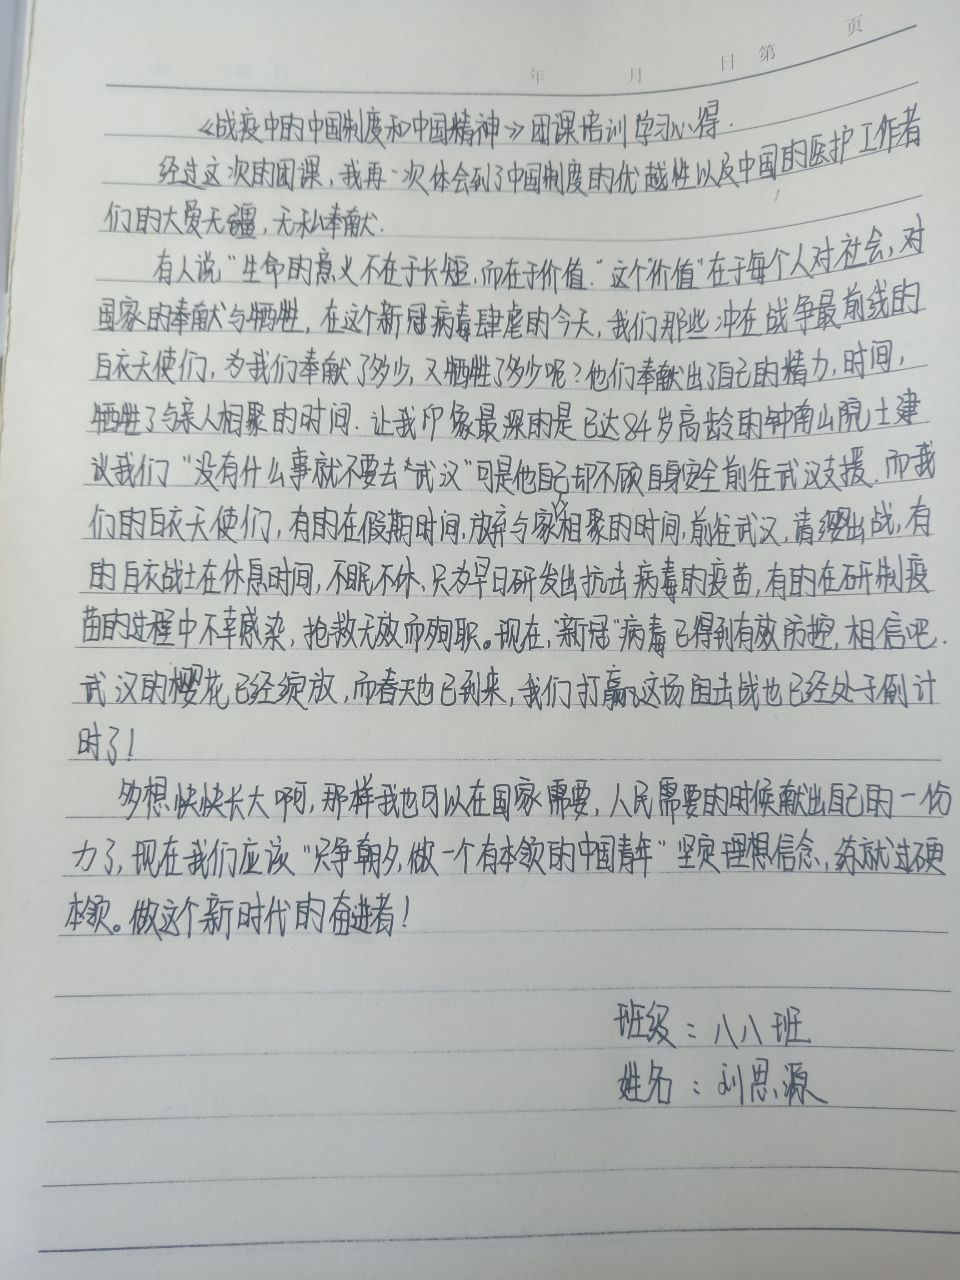 年 月 日 第 页
《战疫中的中国制度和中国精神》团课培训学习心得.
经过这次的团课,我再一次体会到了中国制度的优越性以及中国的医护工作者
们的大爱无疆,无私奉献.
有人说“生命的意义不在于长短,而在于价值.”这个“价值”在于每个人对社会,对
国家的奉献与牺牲,在这个新冠病毒肆虐的今天,我们那些冲在战争最前线的
白衣天使们,为我们奉献了多少,又牺牲了多少呢?他们奉献出了自己的精力,时间,
牺牲了与亲人相聚的时间.让我印象最深的是已达84岁高龄的钟南山院士建
议我们“没有什么事就不要去“武汉”可是他自己却不顾自身安全前往武汉支援.而我
们的白衣天使们,有的在假期时间,放弃与家人相聚的时间,前往武汉,请缨出战,有
的白衣战士在休息时间,不眠不休、只为早日研发出抗击病毒的疫苗,有的在研制疫
苗的过程中不幸感染,抢救无效而殉职。现在,“新冠”病毒已得到有效防控,相信吧.
武汉的樱花已经绽放,而春天也已到来,我们打赢这场阻击战也已经处于倒计
时了!
多想快快长大啊,那样我也可以在国家需要,人民需要的时候献出自己的一份
力了,现在我们应该“只争朝夕,做一个有本领的中国青年”坚定理想信念,练就过硬
本领。做这个新时代的奋进者!
班级:八八班
姓名:刘思源